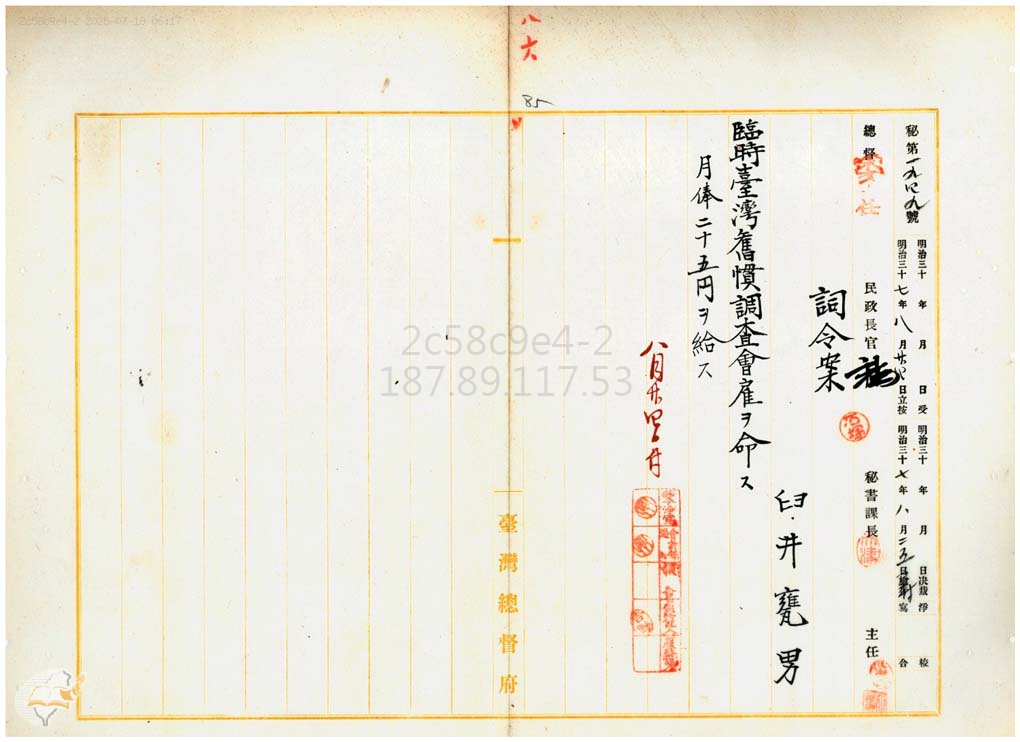 2c58c9e4-2 2025-07-18 06:17
八六
85
秘第一九四九號
明治三十 年 月 日受
明治三十七年八月廿四日立按
明治三十 年 月 日決裁
明治三十七年八月二五日
淨寫
校合
總督
委任
民政長官
秘書課長
主任
詞令案
臼井甕男
臨時臺灣舊慣調査會雇ヲ命ス
月俸二十五円ヲ給ス
八月廿四日
臺灣總督府
2c58c9e4-2
187.89.117.53